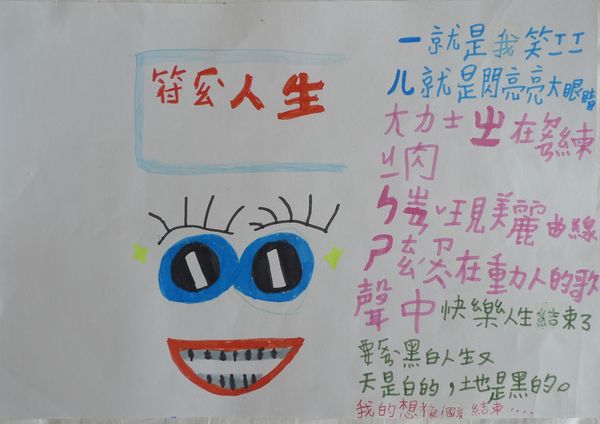 符人生
一就是我笑
ㄦ就是閃亮亮大眼睛
大力士在練
肉
ㄣ現美麗曲線
ㄕ在動人的歌
聲中快樂人生結束了
要黑白人生又
天是白的，土也是黑的。
我的想結束....